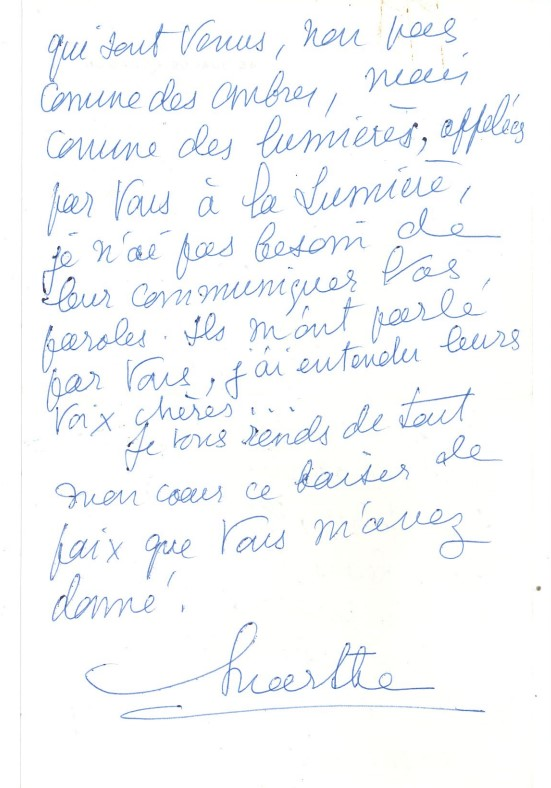 qui sont Venus, non pas
comme des ombres, mais
comme des lumières, appelées
par Vous à la Lumière,
je n'ai pas besoin de
leur communiquer Vos
paroles. Ils m'ont parlé
par Vous, j'ai entendu leurs
Voix chères...
Je vous rends de tout
mon coeur ce baiser de
paix que Vous m'avez
donné.
Marthe